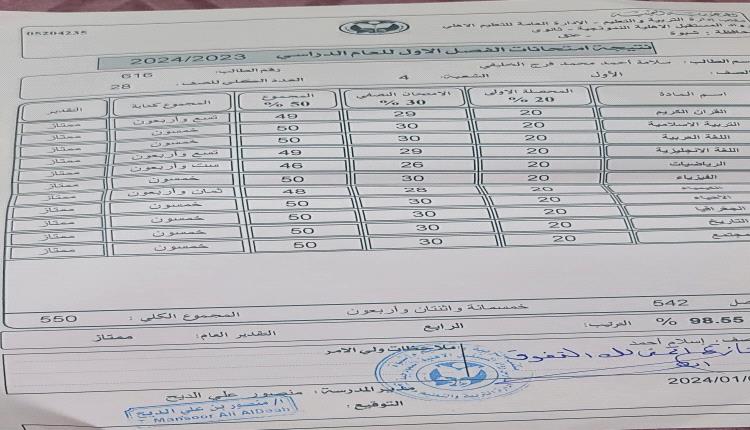 05204235
مكتب إدارة التربية والتعليم - الإدارة العامة للتعليم الأهلي
رواد المستقبل الأهلية النموذجية - ثانوي
محافظة : شبوة
نتيجة امتحانات الفصل الأول للعام الدراسي 2024/2023
اسم الطالب: سلامة أحمد محمد فرج الخليفي رقم الطالب: 616
الصف: الأول الشعبة: 4 العدد الكلي للصف: 28
اسم المادة المحصلة الأولى 20 % الامتحان النصفي 30 % المجموع 50 % المجموع كتابة التقدير
القرآن الكريم 20 29 49 تسع وأربعون ممتاز
التربية الإسلامية 20 30 50 خمسون ممتاز
اللغة العربية 20 30 50 خمسون ممتاز
اللغة الإنجليزية 20 29 49 تسع وأربعون ممتاز
الرياضيات 20 26 46 ست وأربعون ممتاز
الفيزياء 20 30 50 خمسون ممتاز
الكيمياء 20 28 48 ثمان وأربعون ممتاز
الأحياء 20 30 50 خمسون ممتاز
الجغرافيا 20 30 50 خمسون ممتاز
التاريخ 20 30 50 خمسون ممتاز
مجتمع 20 30 50 خمسون ممتاز
542 خمسمائة واثنتان وأربعون المجموع الكلي : 550
98.55 % الترتيب: الرابع التقدير العام: ممتاز
إسلام أحمد ملاحظات ولي الأمر
أتمنى لك التفوق
2024/01/0 مدير المدرسة : منصور علي الذيح
التوقيع :
أ/ منصور بن علي الذيح
T. Mansoor Ali AlDaah